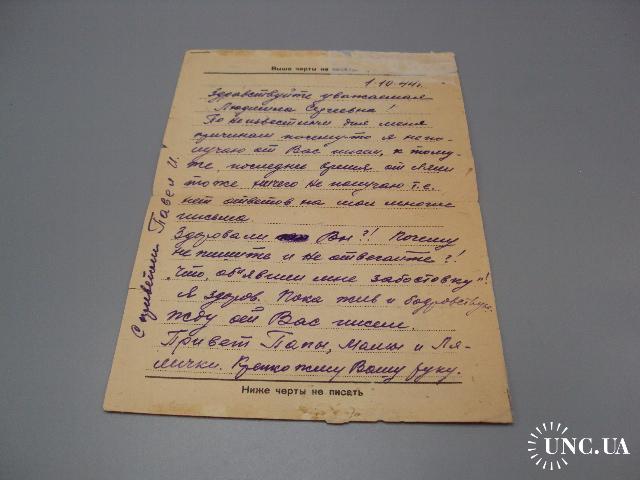 Выше черты не писать
1.10.44г.
Здравствуйте уважаемая
Людмила Сергеевна!
По неизвестным для меня
причинам почему-то я не по-
лучаю от Вас писем, к тому-
же, последнее время от Ляли
тоже ничего не получаю т.е.
нет ответов на мои многие
письма.
Здоровали Вы?! Почему
не пишите и не отвечаете?!
"Что об"явили мне забостовку"!
Я здоров. Пока жив и бодрствую.
Жду от Вас писем.
Привет Папы, Мамы и Ля-
лички. Крепко жму Вашу руку.
С приветом Павел И.
Ниже черты не писать
UNC.UA